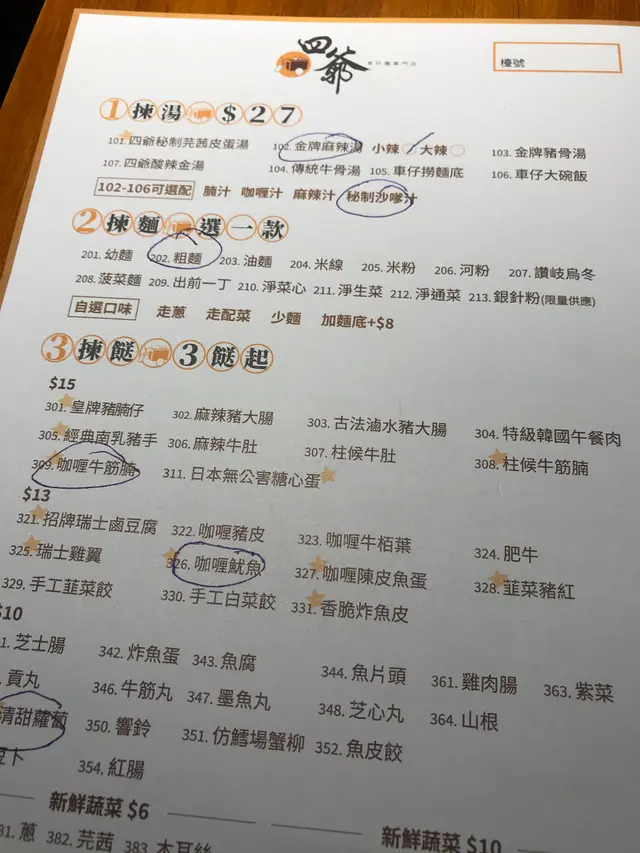 四爺
車仔麵專門店
檯號
1 揀湯 $27
101. 四爺秘制芫茜皮蛋湯 102. 金牌麻辣湯 小辣 大辣 103. 金牌豬骨湯
107. 四爺酸辣金湯 104. 傳統牛骨湯 105. 車仔撈麵底 106. 車仔大碗飯
102-106可選配 腩汁 咖喱汁 麻辣汁 秘制沙嗲汁
2 揀麵 選一款
201. 幼麵 202. 粗麵 203. 油麵 204. 米線 205. 米粉 206. 河粉 207. 讚岐烏冬
208. 菠菜麵 209. 出前一丁 210. 淨菜心 211. 淨生菜 212. 淨通菜 213. 銀針粉(限量供應)
自選口味 走蔥 走配菜 少麵 加麵底+$8
3 揀餸 3餸起
$15
301. 皇牌豬腩仔 302. 麻辣豬大腸 303. 古法滷水豬大腸 304. 特級韓國午餐肉
305. 經典南乳豬手 306. 麻辣牛肚 307. 柱候牛肚 308. 柱候牛筋腩
309. 咖喱牛筋腩 311. 日本無公害糖心蛋
$13
321. 招牌瑞士鹵豆腐 322. 咖喱豬皮 323. 咖喱牛栢葉 324. 肥牛
325. 瑞士雞翼 326. 咖喱魷魚 327. 咖喱陳皮魚蛋 328. 韮菜豬紅
329. 手工韮菜餃 330. 手工白菜餃 331. 香脆炸魚皮
$10
1. 芝士腸 342. 炸魚蛋 343. 魚腐 344. 魚片頭 361. 雞肉腸 363. 紫菜
貢丸 346. 牛筋丸 347. 墨魚丸 348. 芝心丸 364. 山根
清甜蘿蔔 350. 響鈴 351. 仿鱈場蟹柳 352. 魚皮餃
354. 紅腸
新鮮蔬菜 $6 新鮮蔬菜 $10
81. 蔥 382. 芫茜 383. 木耳絲